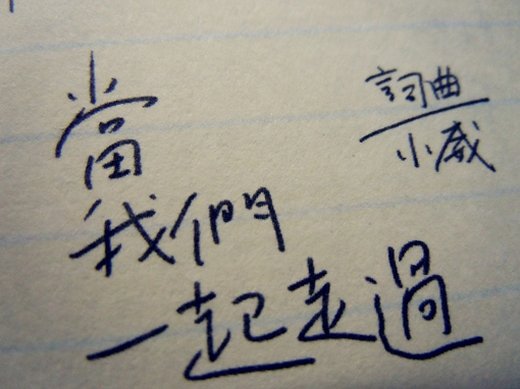 當
我們
一起走過
詞曲
小威